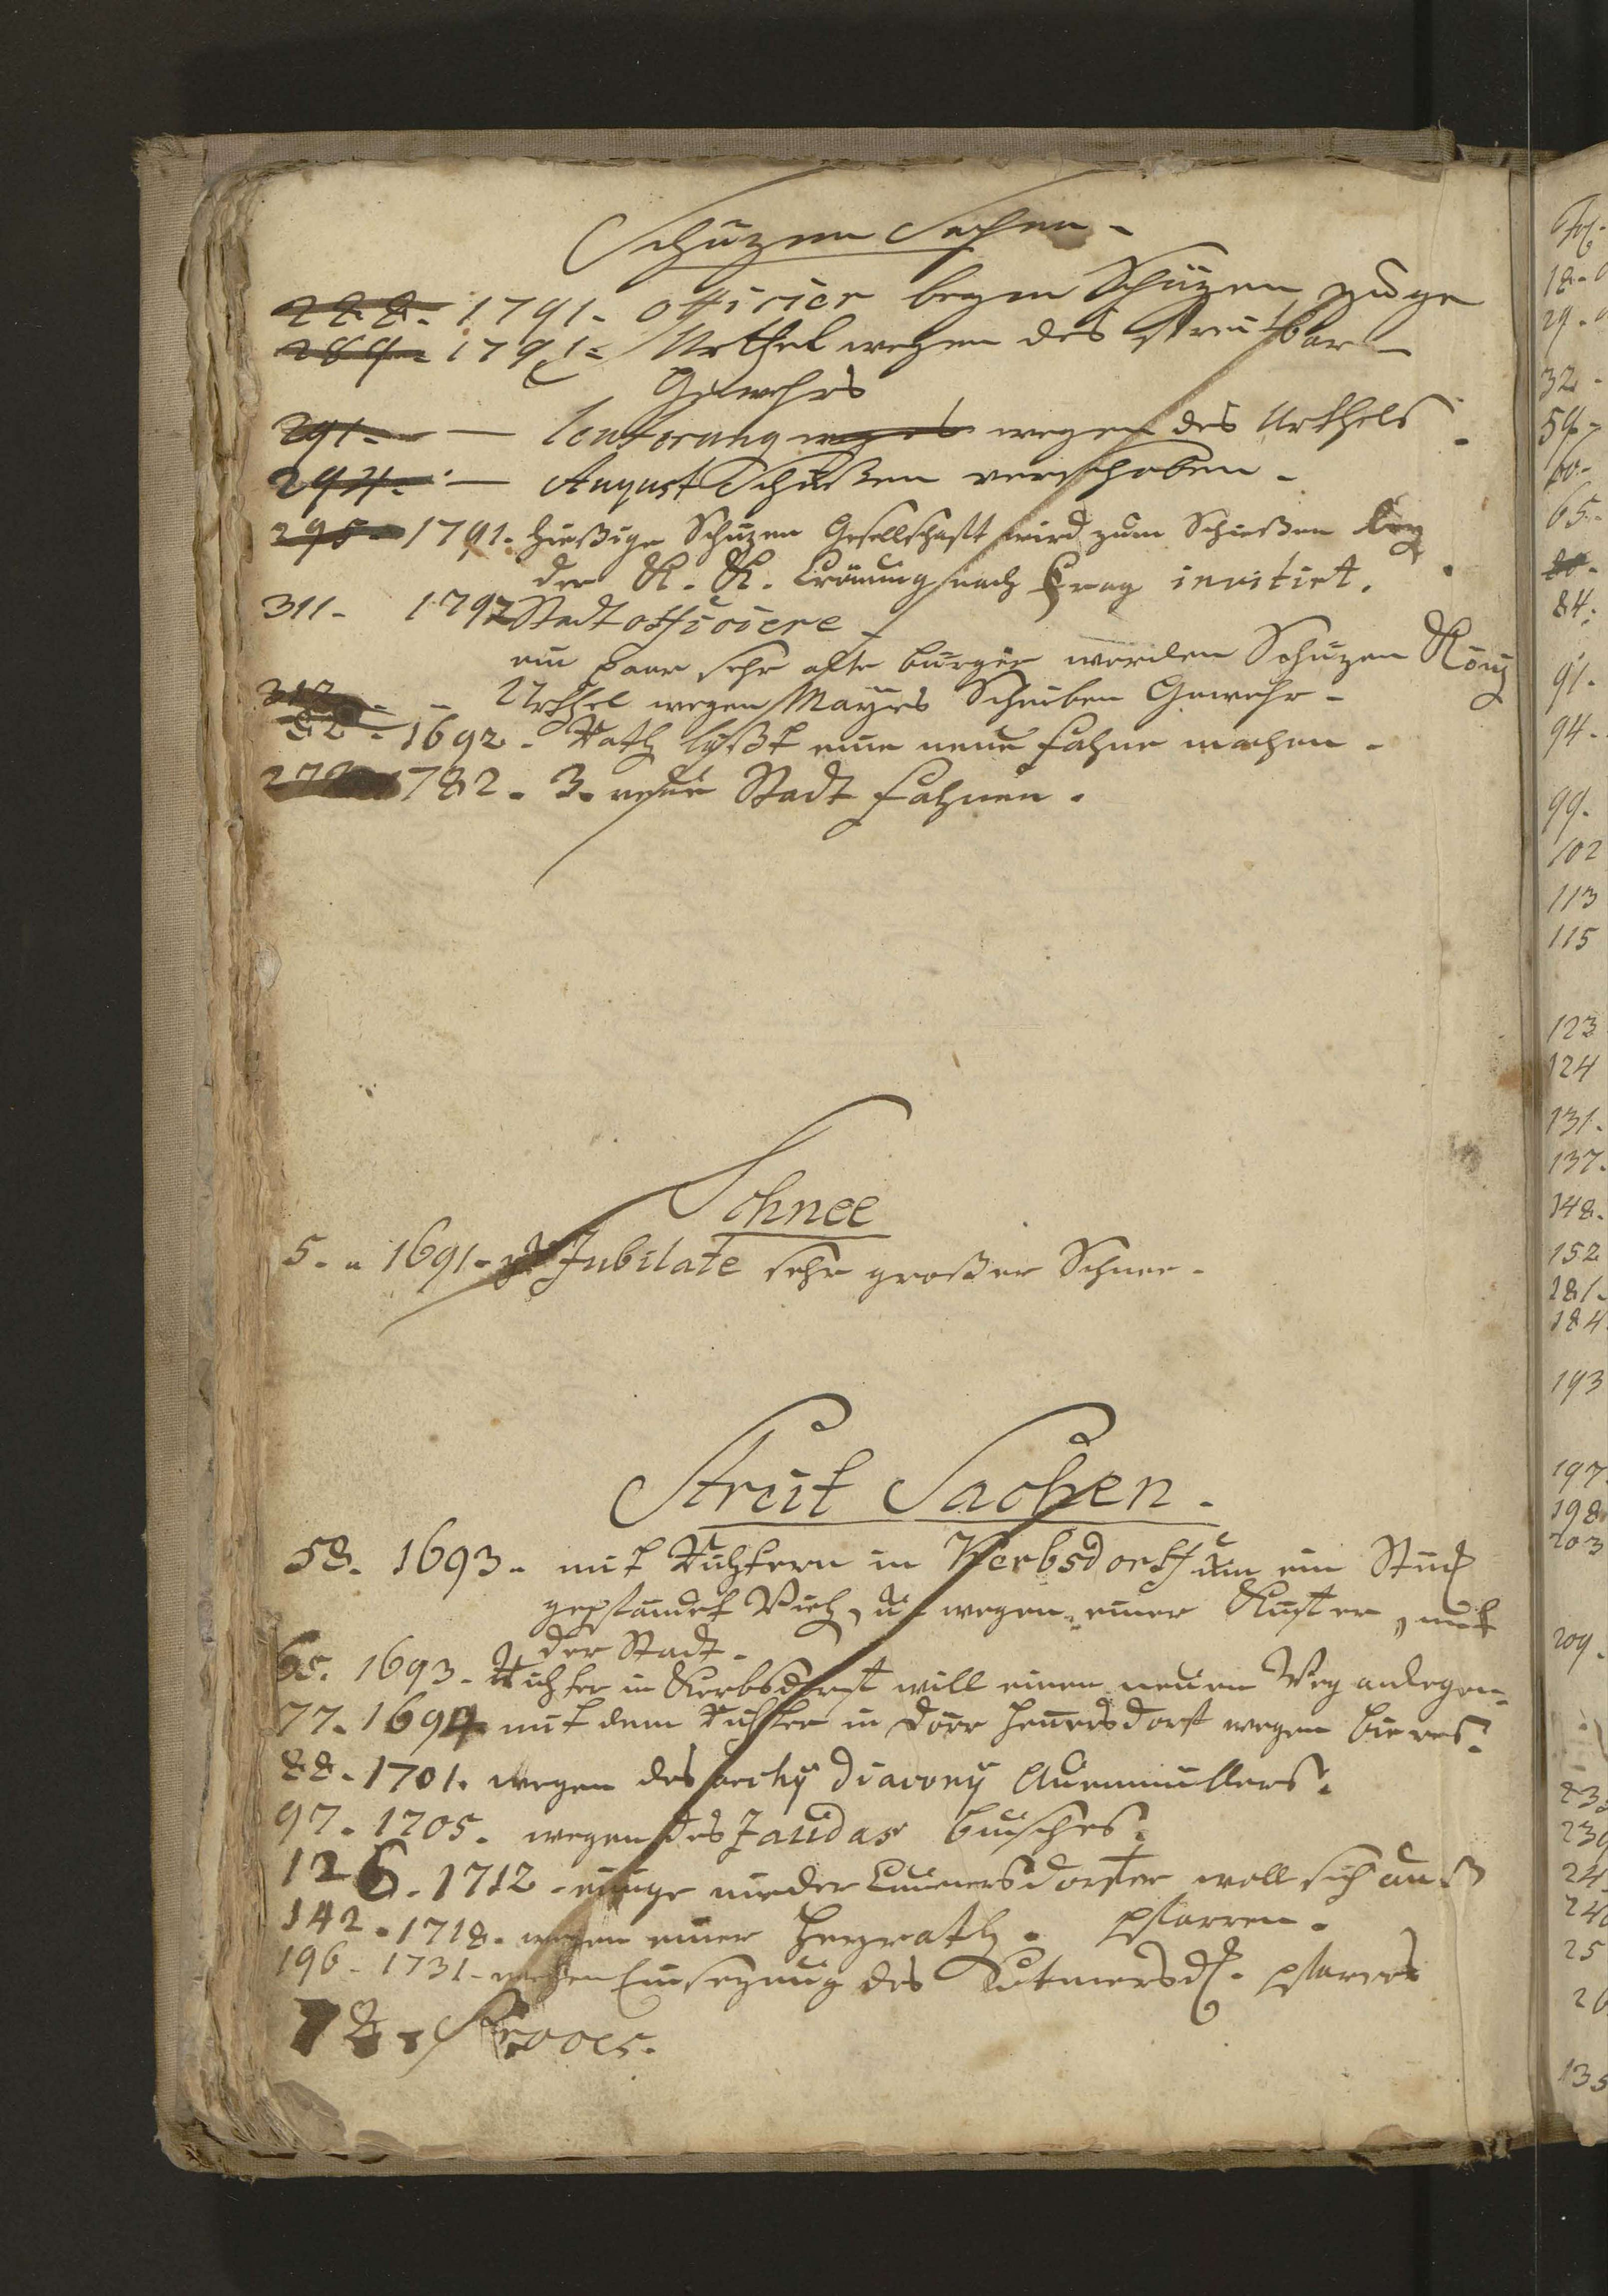 Schuzen Sachen -
288 - 1791 - Officier beym Schüzen zuge
289 - 1791 = Urthel wegen des streitbar-
Gewehrs
291 - — wegen des Urthels
294 - — August Schießen verschoben -
295 - 1791. hießige Schuzen Gesellschaft wird zum Schießen bey
der K. K. Crönung nach Prag invitirt.
311 - 1797 Stadt officiere -
ein paar sehr alte burger werden Schuzen König
312 - - Urthel wegen Mayers Scheiben Gewehr -
52 - 1692 - Rath läßt eine neue fahne machen -
272 1782 - 3. neue Stadt fahnen.
Schnee
5. - 1691 - Jubilate sehr großer Schnee -
Streit Sachen.
53. 1693 - mit Richtern in Kerbsdorff um ein Stück
gepfändet Vieh, u. wegen einer Küster, mit
der Stadt -
65. 1693 - Richter in Kerbsdorff will einen neuen Weg anlegen -
77. 1694 mit dem Richter in Dörr Henersdorf wegen bieres.
88 - 1701. wegen des archy Diacony Auenmüllers.
97 - 1705. wegen des Zaudas busches.
126 - 1712 - einige nieder Cunersdorfer woll sich aus
pfarren.
142 - 1718. wegen einer Heyrath.
196 - 1731 - wegen Einsezung des pfarres
78.